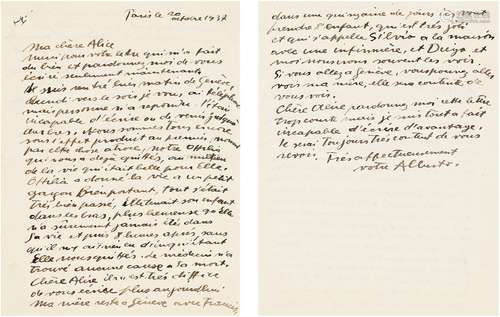 Paris le 20
octobre 1937
Ma chère Alice
merci pour votre lettre qui m'a fait
du bien et pardonnez moi de vous
écrire seulement maintenant.
Je suis rentré lundi matin de Genève,
lundi vers le soir je vous ai téléphoné
mais personne n'a répondu. J'étais
incapable d'écrire ou de venir jusqu'à
Nous sommes tous encore
sous l'effet produit au premier moment
par cette chose atroce, notre Ottilia
qui nous a déjà quittés, au milieu
de la vie qui était belle pour Elle.
Ottilia a donné la vie a un petit
garçon Bien portant, tout s'était
très bien passé, Elle tenait son enfant
dans les bras, plus heureuse qu'Elle
n'a sûrement jamais été dans
sa vie et puis 5 heures après sans
qu'il y ait rien eu d'inquiétant
Elle nous quittés. Le médecin n'a
trouvé aucune cause à la mort.
Chère Alice il m'est très difficile
de vous écrire plus aujourdhui
Ma mère reste a Genève avec Francis,
dans une quinzaine de jours ils vont
prendre l'Enfant, qui est très joli
et qui s'appelle Silvio a la maison
avec une infirmière, et Diego et
moi nous irons souvent les voir.
Si vous allez a Genève, vous pouvez aller
voir ma mère, elle sera contente de
vous voir.
Chère Alice pardonnez moi cette lettre
trop courte mais je suis tout a fait
incapable d'écrire d'avantage.
Je serai toujours très content de vous
revoir. Très affectueusement
votre Alberto.